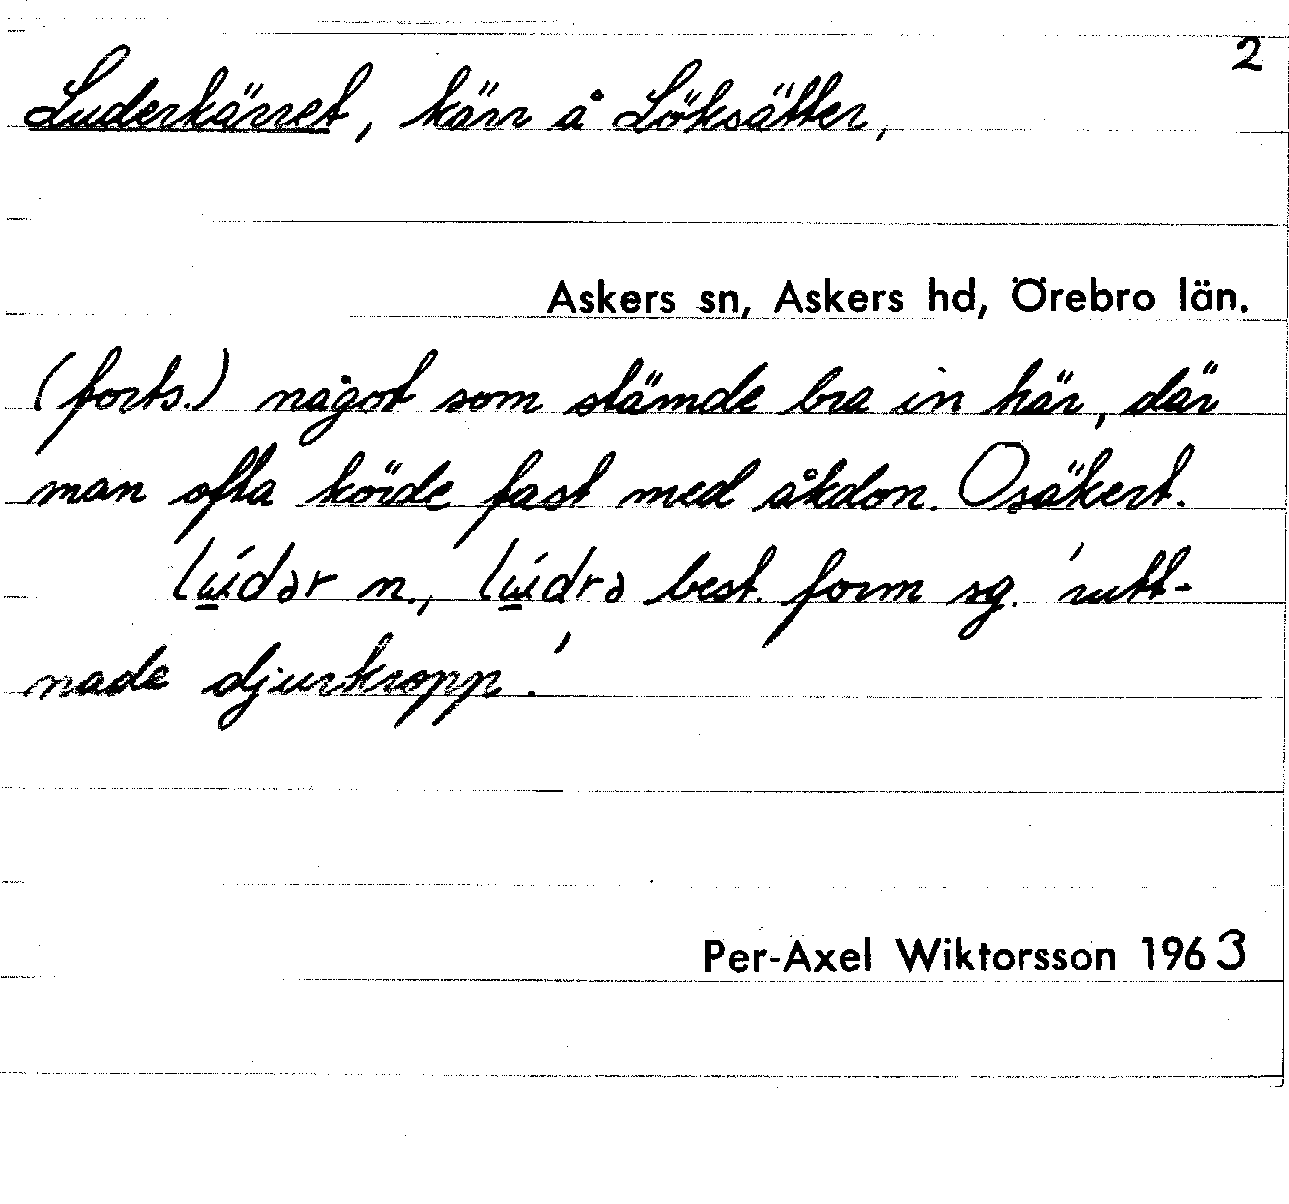 2
Luderkärret, kärr å Löksätter,
Askers sn, Askers hd, Örebro län.
(forts.) något som stämde bra in här, där
man ofta körde fast med åkdon. Osäkert.
lɯ̱́dər n., lɯ̱́drə best. form sg. 'rutt-
nade djurkropp.'
Per-Axel Wiktorsson 1963